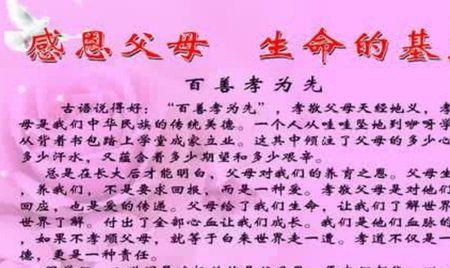 感恩父母 生命的基
百善孝为先
古语说得好：“百善孝为先”，孝敬父母天经地义，孝
母是我们中华民族的传统美德。一个人从哇哇坠地到咿呀学
从背着书包踏上学堂成家立业。这其中倾注了父母的多少心
多少汗水，又蕴含着多少期望和多少艰辛。
总是在长大后才能明白，父母对我们的养育之恩。父母生
，养我们，不是要求回报，而是一种爱。孝敬父母是对他们
回应，也是爱的传递。父母给了我们生命，让我们了解世界
世界了解。付出了全部心血让我们成长。我们是他们血脉的
，如果不孝顺父母，就等于白来世界走一遭。孝道不仅是一
德，更是一种责任。